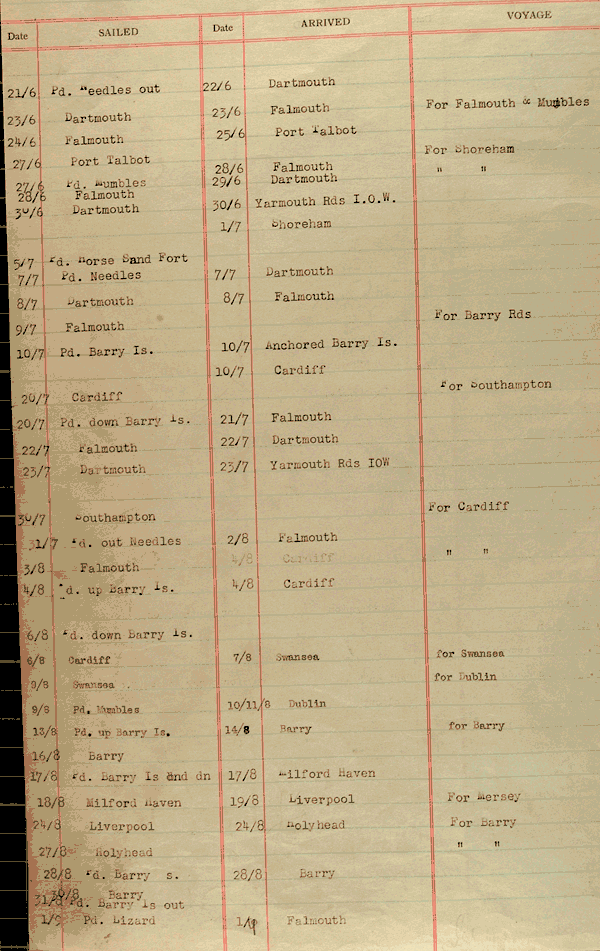 Date SAILED Date ARRIVED VOYAGE
21/6 Pd. Needles out 22/6 Dartmouth
23/6 Dartmouth 23/6 Falmouth For Falmouth & Mumbles
24/6 Falmouth 25/6 Port Talbot
27/6 Port Talbot 28/6 Falmouth For Shoreham
27/6 Pd. Mumbles 29/6 Dartmouth " "
28/6 Falmouth
30/6 Dartmouth 30/6 Yarmouth Rds I.O.W.
1/7 Shoreham
5/7 Pd. Horse Sand Fort
7/7 Pd. Needles 7/7 Dartmouth
8/7 Dartmouth 8/7 Falmouth
9/7 Falmouth For Barry Rds
10/7 Pd. Barry Is. 10/7 Anchored Barry Is.
10/7 Cardiff
20/7 Cardiff For Southampton
20/7 Pd. down Barry Is. 21/7 Falmouth
22/7 Falmouth 22/7 Dartmouth
23/7 Dartmouth 23/7 Yarmouth Rds IOW
30/7 Southampton For Cardiff
31/7 Pd. out Needles 2/8 Falmouth
4/8 Cardiff " "
3/8 Falmouth
4/8 Pd. up Barry Is. 4/8 Cardiff
6/8 Pd. down Barry Is.
6/8 Cardiff 7/8 Swansea for Swansea
9/8 Swansea . for Dublin
9/8 Pd. Mumbles 10/11/8 Dublin
13/8 Pd. up Barry Is. 14/8 Barry for Barry
16/8 Barry
17/8 Pd. Barry Is and dn 17/8 Milford Haven
18/8 Milford Haven 19/8 Liverpool For Mersey
24/8 Liverpool 24/8 Holyhead For Barry
27/8 Holyhead " "
28/8 Pd. Barry s. 28/8 Barry
30/8 Barry
31/8 Pd. Barry Is out
1/9 Pd. Lizard 1/9 Falmouth